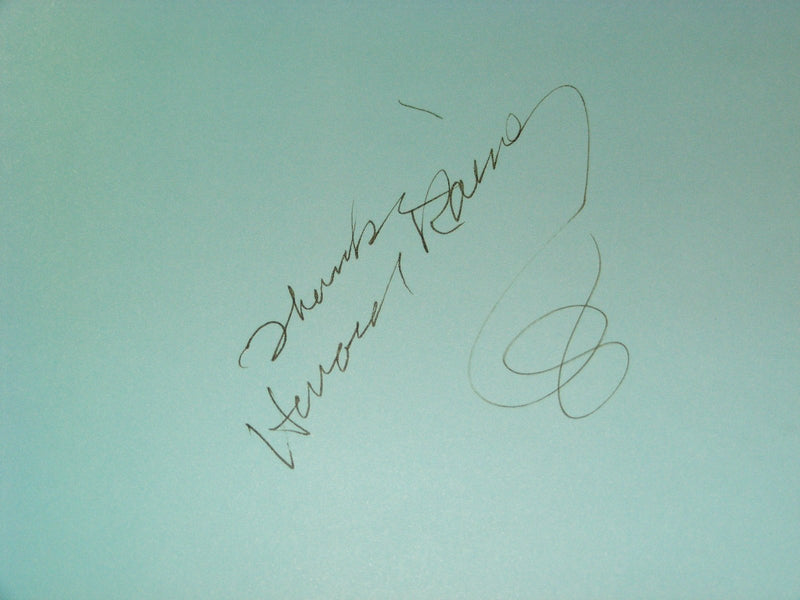 Thanks
Harold Ramis